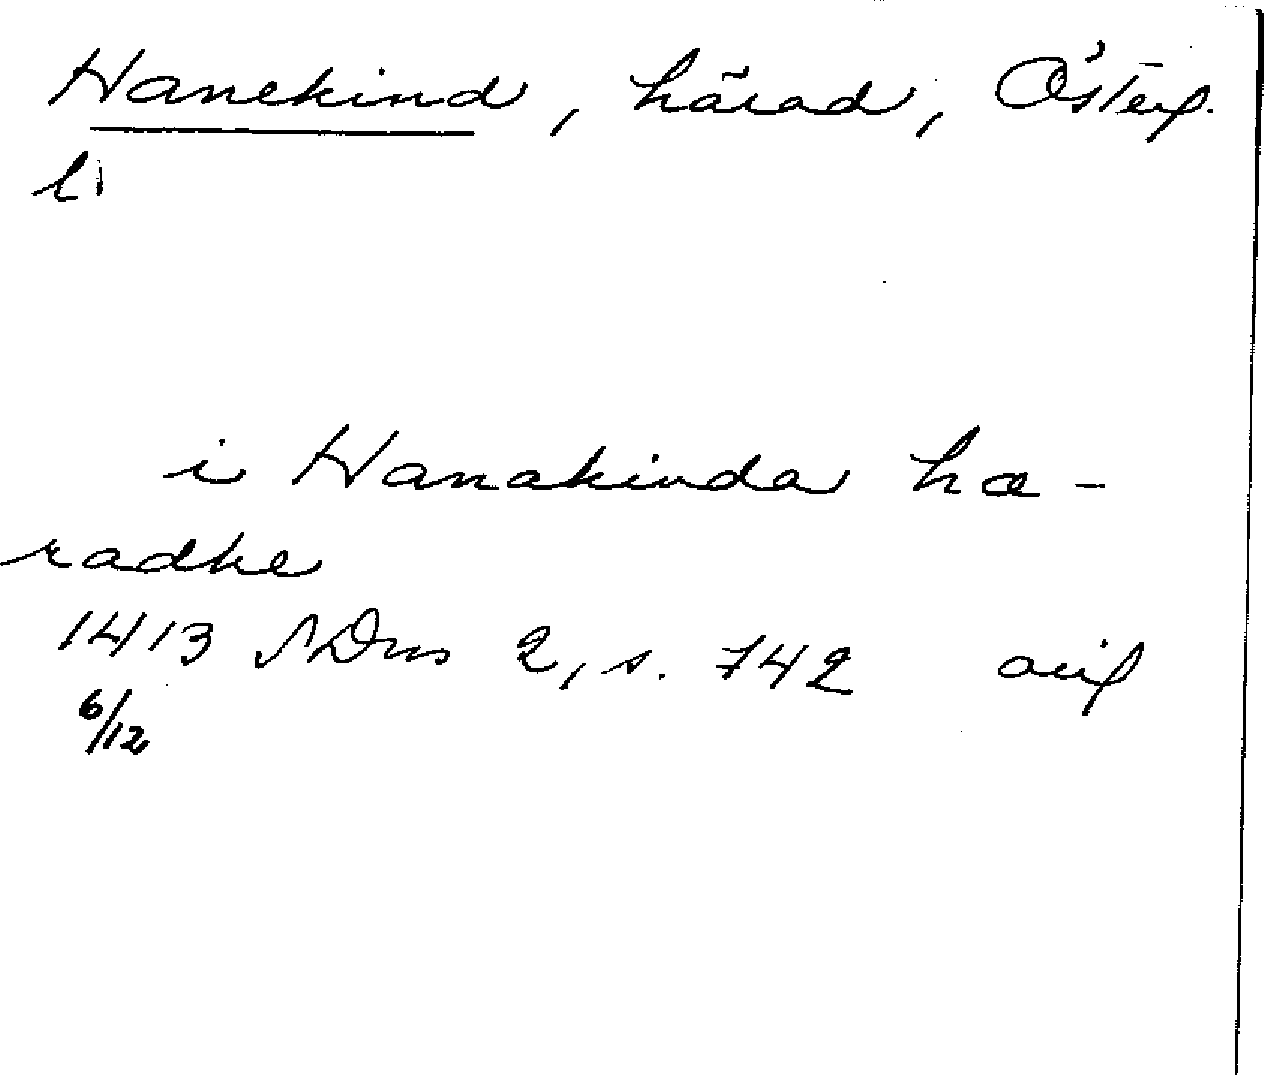 Hanekind, härad, Österg.
l:
i Hanakinda hæ-
radhe
1413 SDns 2, s. 742 orig
6/12